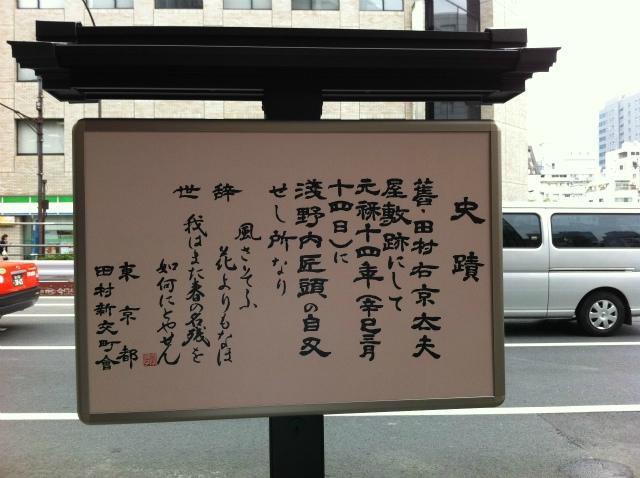 史蹟
舊・田村右京太夫
屋敷跡にして
元禄十四年(辛巳三月
十四日)に
淺野内匠頭の自刃
せし所なり
辞世
風さそふ
花よりもなほ
我はまた春の名残を
如何にとやせん
東京都
田村新交町會